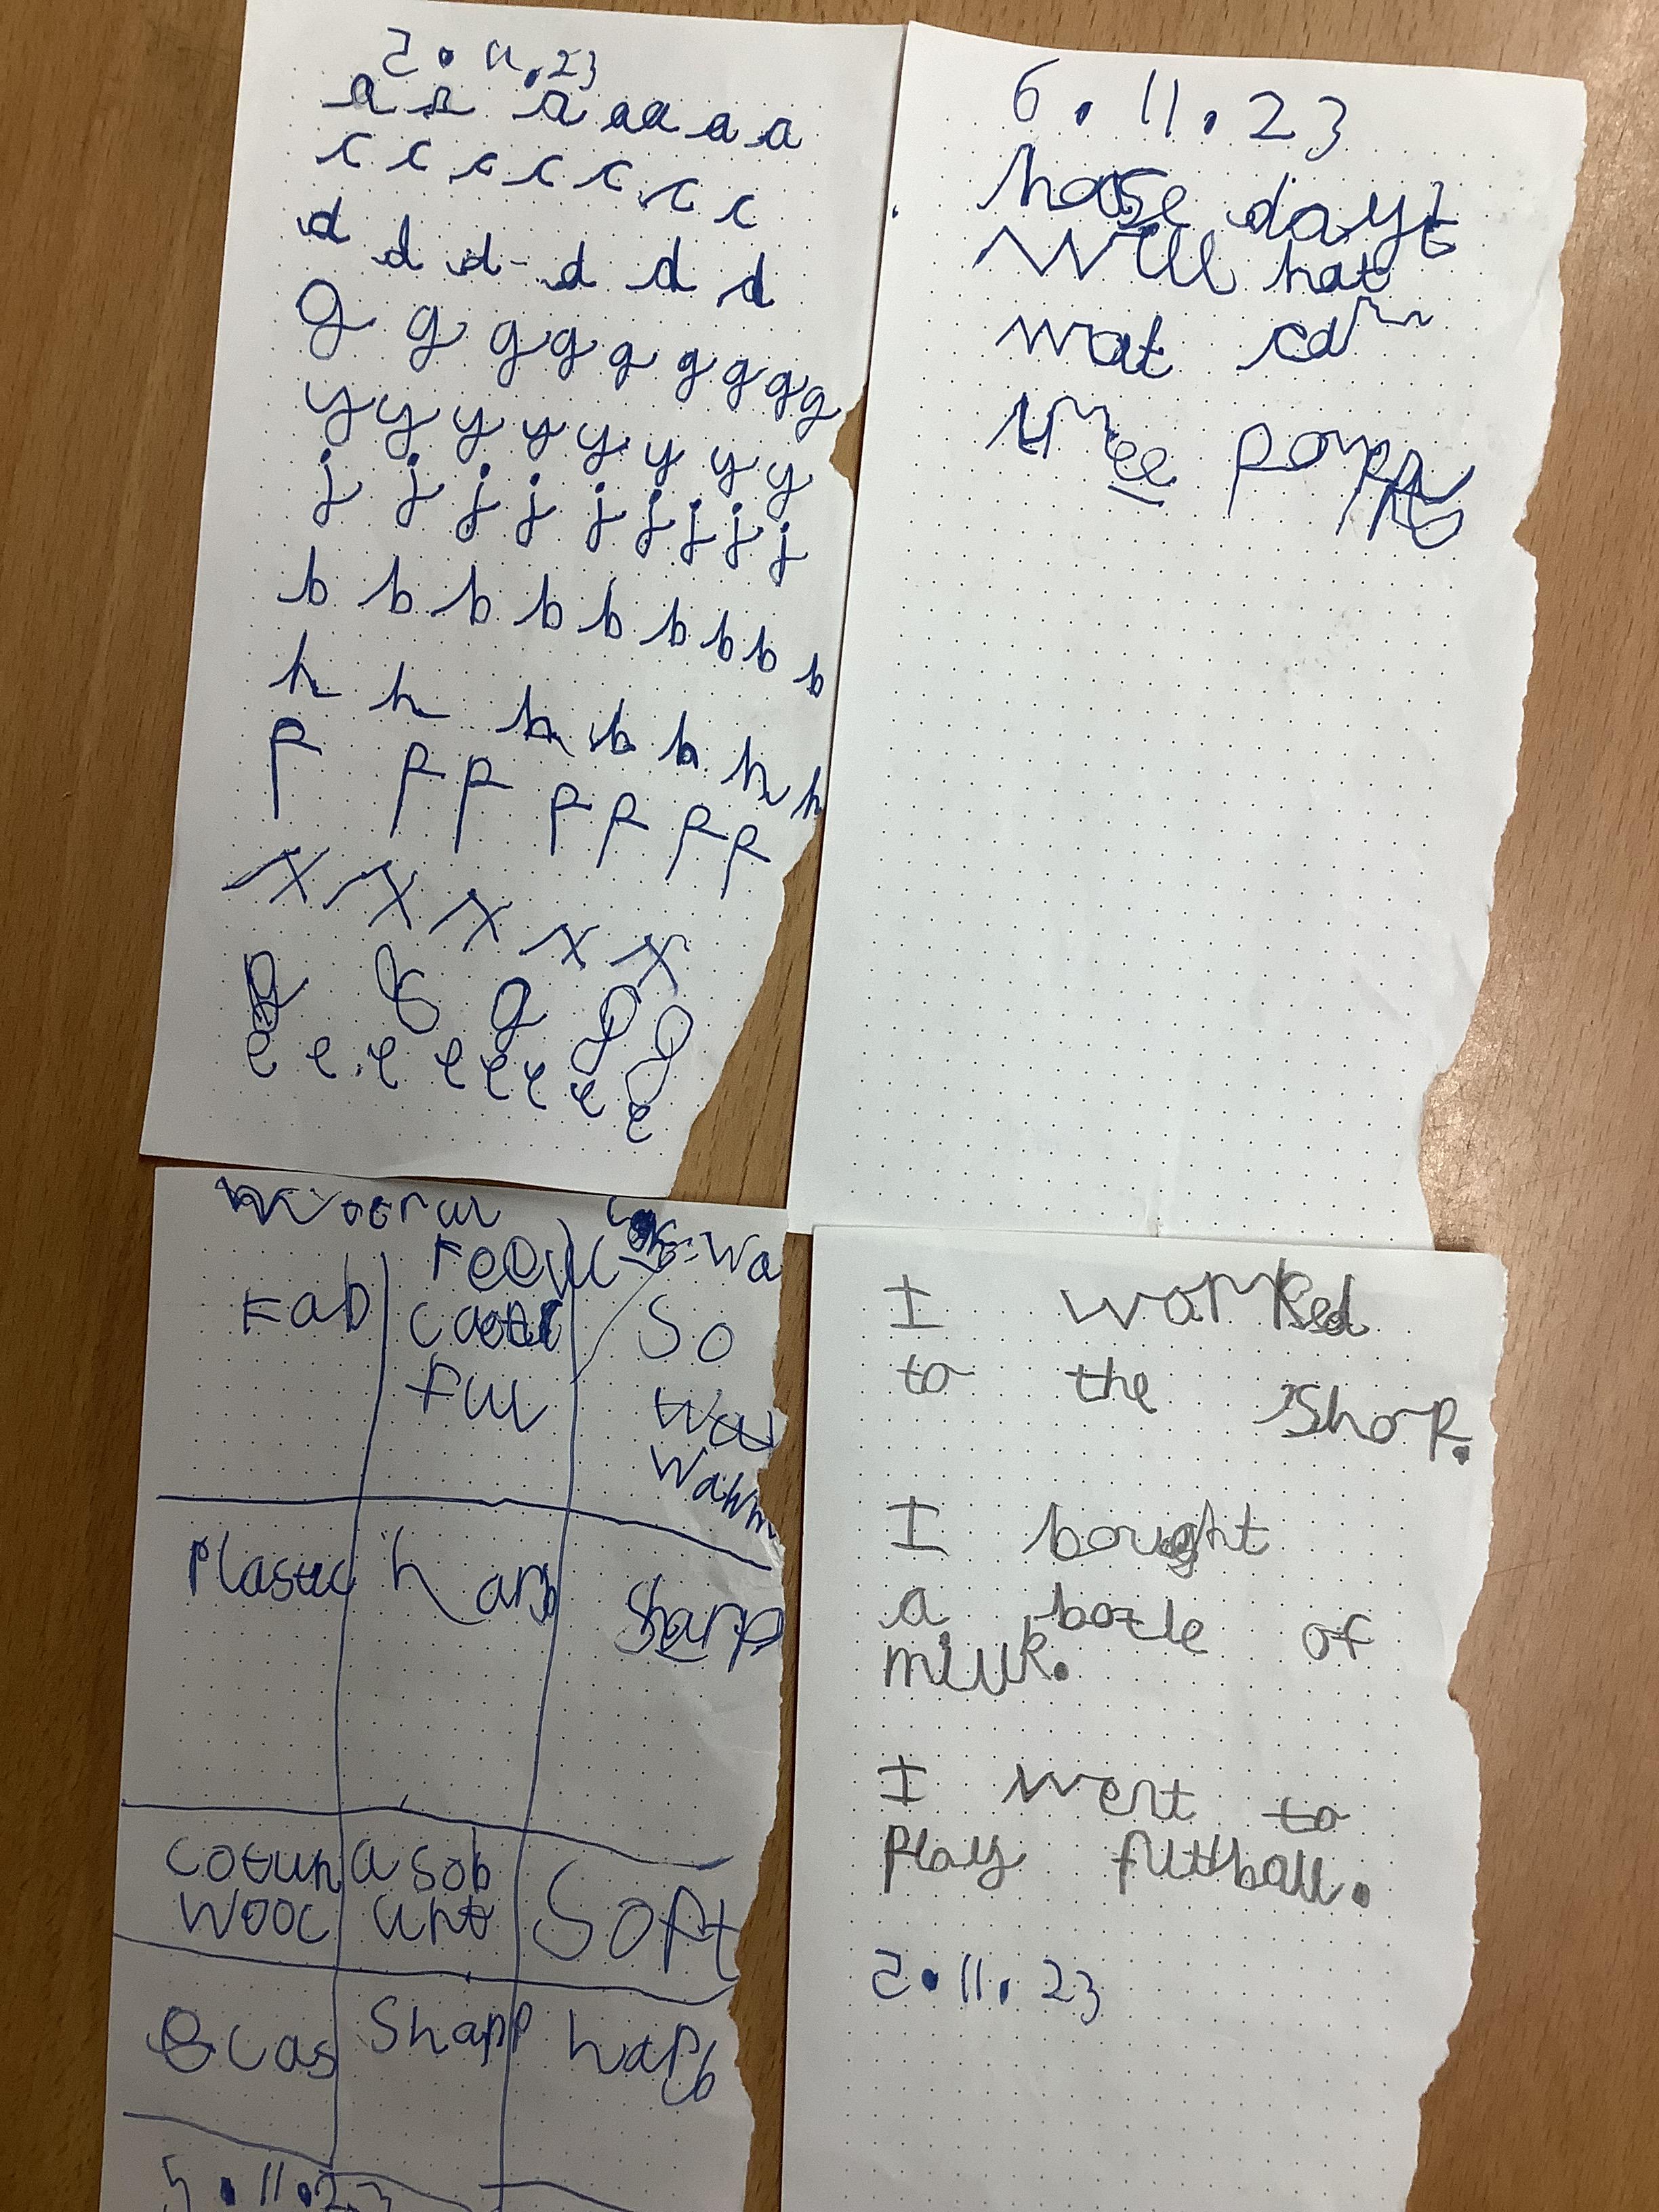 2.11.23
a a a a a a a
c c c c c c c
d d d d d d
g g g g g g g g g
y y y y y y y y
j j j j j j j j j
b b b b b b b b b
h h h h h h h
p p p p p p p
x x x x x
g g g g g
e e e e e e e e
6.11.23
hoase dayt
Will hat
mat car
tree
Fab
ful
So
Wa
Wawm
Plastic harb Sharp
cotun a sob
wooc unt Soft
Glas Sharp harb
5.11.23
I warked
to the Shop.
I bought
a botle of
milk.
I went to
Play futtball.
2.11.23